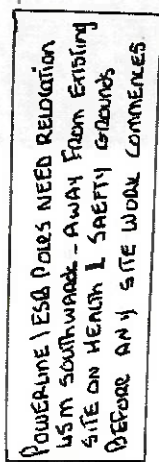 POWERLINE / ESB POLES NEED RELOCATION
45M SOUTHWARDS - AWAY FROM EXISTING
SITE ON HEALTH & SAEFTY GROUNDS
BEFORE ANY SITE WORK COMMENCES